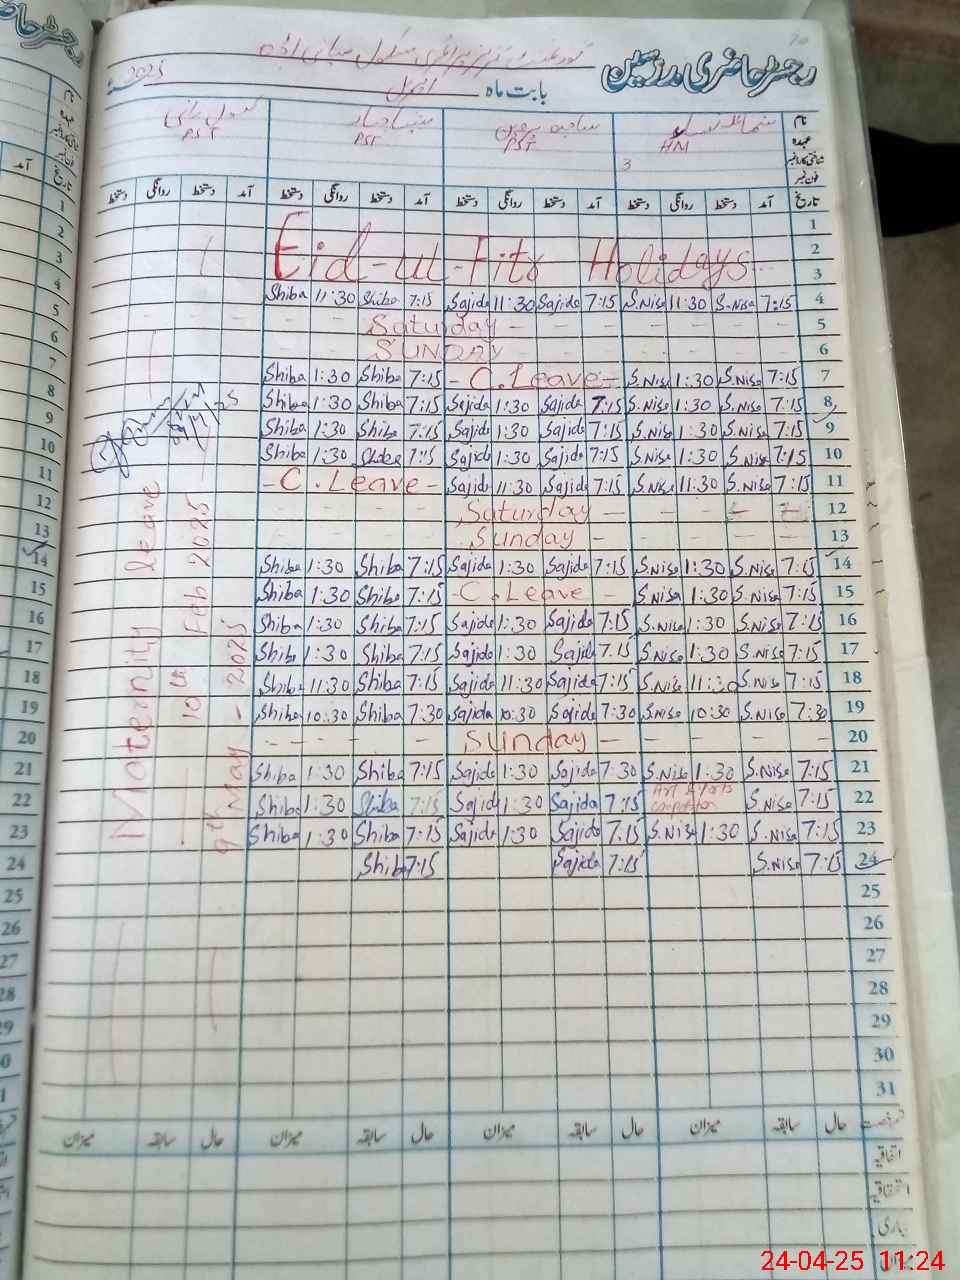 رجسٹر حاضری مدرسین
بابت ماہ اپریل 2025
نام
عہدہ HM PST PST PST
شناختی کارڈ نمبر 3
فون نمبر
تاریخ آمد دستخط روانگی دستخط آمد دستخط روانگی دستخط آمد دستخط روانگی دستخط آمد دستخط روانگی دستخط
1
Eid-ul-Fitr Holidays 2
3
Shiba 11:30 Shiba 7:15 Sajida 11:30 Sajida 7:15 S.Nisa 11:30 S.Nisa 7:15 4
Saturday 5
SUNDAY 6
Shiba 1:30 Shiba 7:15 - C.Leave - S.Nisa 1:30 S.Nisa 7:15 7
Shiba 1:30 Shiba 7:15 Sajida 1:30 Sajida 7:15 S.Nisa 1:30 S.Nisa 7:15 8
Shiba 1:30 Shiba 7:15 Sajida 1:30 Sajida 7:15 S.Nisa 1:30 S.Nisa 7:15 9
Shiba 1:30 Shiba 7:15 Sajida 1:30 Sajida 7:15 S.Nisa 1:30 S.Nisa 7:15 10
- C.Leave - Sajida 11:30 Sajida 7:15 S.Nisa 11:30 S.Nisa 7:15 11
Saturday 12
Sunday 13
Shiba 1:30 Shiba 7:15 Sajida 1:30 Sajida 7:15 S.Nisa 1:30 S.Nisa 7:15 14
Shiba 1:30 Shiba 7:15 - C.Leave - S.Nisa 1:30 S.Nisa 7:15 15
Shiba 1:30 Shiba 7:15 Sajida 1:30 Sajida 7:15 S.Nisa 1:30 S.Nisa 7:15 16
Shiba 1:30 Shiba 7:15 Sajida 1:30 Sajida 7:15 S.Nisa 1:30 S.Nisa 7:15 17
Shiba 11:30 Shiba 7:15 Sajida 11:30 Sajida 7:15 S.Nisa 11:30 S.Nisa 7:15 18
Shiba 10:30 Shiba 7:30 Sajida 10:30 Sajida 7:30 S.Nisa 10:30 S.Nisa 7:30 19
Sunday 20
Shiba 1:30 Shiba 7:15 Sajida 1:30 Sajida 7:30 S.Nisa 1:30 S.Nisa 7:15 21
Shiba 1:30 Shiba 7:15 Sajida 1:30 Sajida 7:15 S.Nisa 7:15 22
Shiba 1:30 Shiba 7:15 Sajida 1:30 Sajida 7:15 S.Nisa 1:30 S.Nisa 7:15 23
Shiba 7:15 Sajida 7:15 S.Nisa 7:15 24
25
26
27
28
29
30
31
Maternity Leave
10th Feb 2025
9th May - 2025
حال سابقہ میزان حال سابقہ میزان حال سابقہ میزان حال سابقہ میزان
اتفاقیہ
استحقاقیہ
بیماری
میزان
آمد
1
2
3
4
5
6
7
8
9
10
11
12
13
14
15
16
17
18
19
20
21
22
23
24
25
26
27
28
24-04-25 11:24